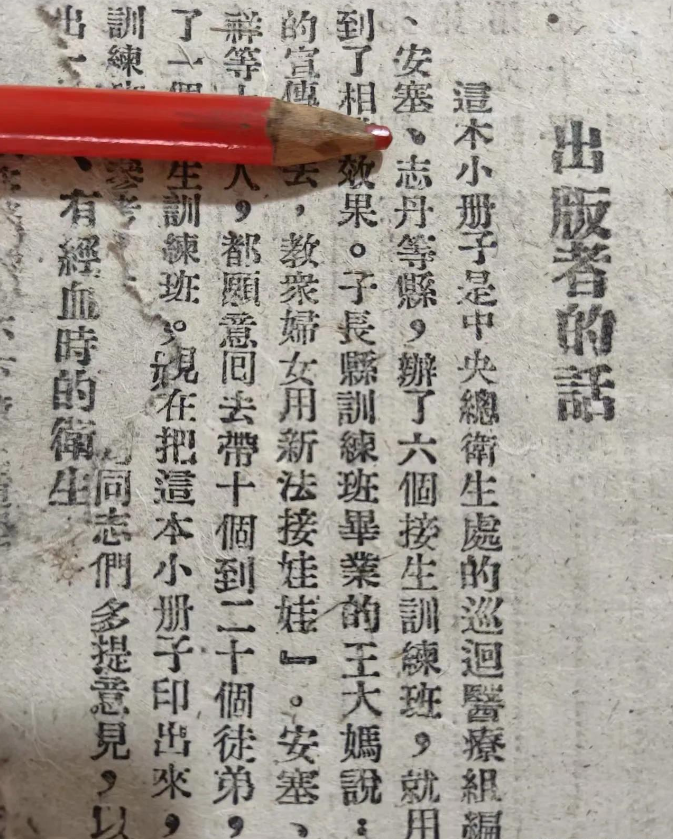 出版者的話
這本小册子是中央總衛生處的巡迴醫療組編
、安塞、志丹等縣，辦了六個接生訓練班，就用
到了相 效果。子長縣訓練班畢業的王大媽說：
的宣傳 去，教衆婦女用新法接娃娃』。安塞、
祥等 人，都願意囘去帶十個到二十個徒弟，
了一個 生訓練班。現在把這本小册子印出來，
訓練班參考 同志們多提意見，以
出 、有經血時的衛生